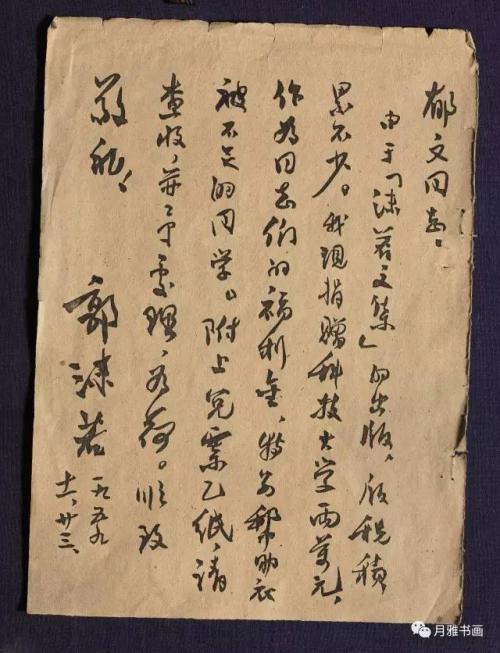 郁文同志：
由于「沫若文集」的出版，版税积
累不少。我现捐赠科技大学两万元，
作为同志们的福利金，特为帮助衣
被不足的同学。附上兑票乙纸，请
查收，并予处理为荷。顺致
敬礼！
郭沫若
一九五九
十一、廿三、
月雅书画